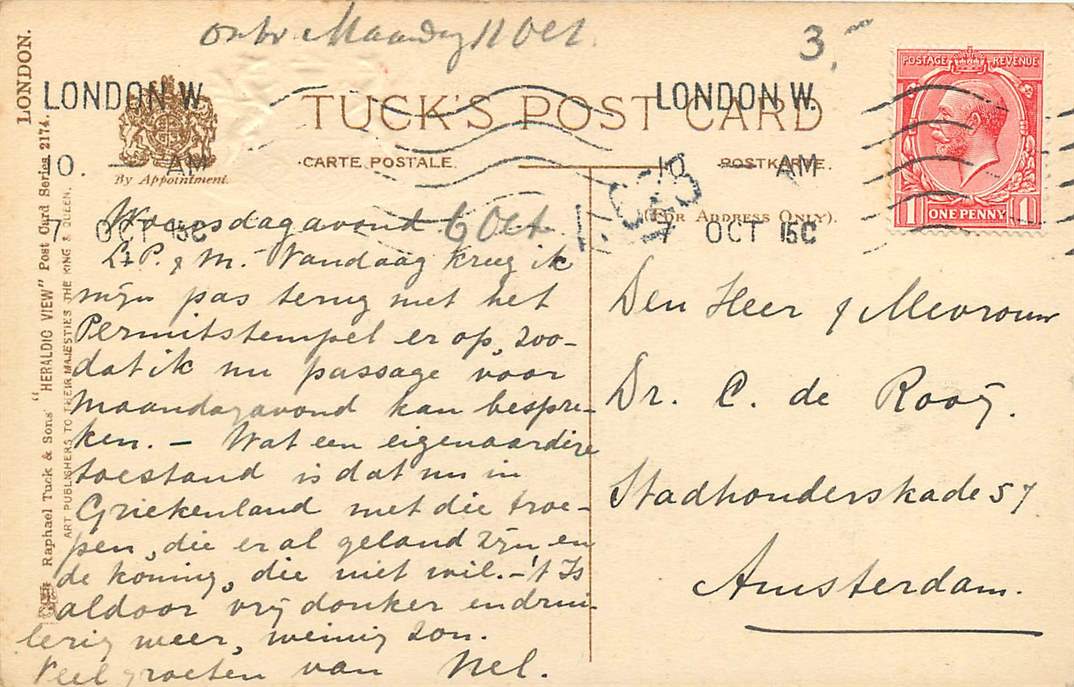 Maandag 11 Oct.
3
LONDON.
LONDON.W.
10. — AM
7 OCT 15C
By Appointment.
TUCK'S POST CARD
CARTE POSTALE.
POSTKARTE.
(FOR ADDRESS ONLY).
LONDON.W.
10 — AM
7 OCT 15C
POSTAGE REVENUE
1 ONE PENNY 1
Raphael Tuck & Sons' "HERALDIC VIEW" Post Card Series 2174.
ART PUBLISHERS TO THEIR MAJESTIES THE KING & QUEEN.
Woensdagavond 6 Oct.
L. P. & M. Vandaag kreeg ik
mijn pas terug met het
Permitstempel er op, zoo-
dat ik nu passage voor
Maandagavond kan bespre-
ken. – Wat een eigenaardige
toestand is dat nu in
Griekenland met die troe-
pen, die er al geland zijn en
de koning, die niet wil. – 't Is
aldoor vrij donker en drui-
lerig weer, weinig zon.
Veel groeten van Nel.
Den Heer & Mevrouw
Dr. C. de Rooij.
Stadhouderskade 57
Amsterdam.